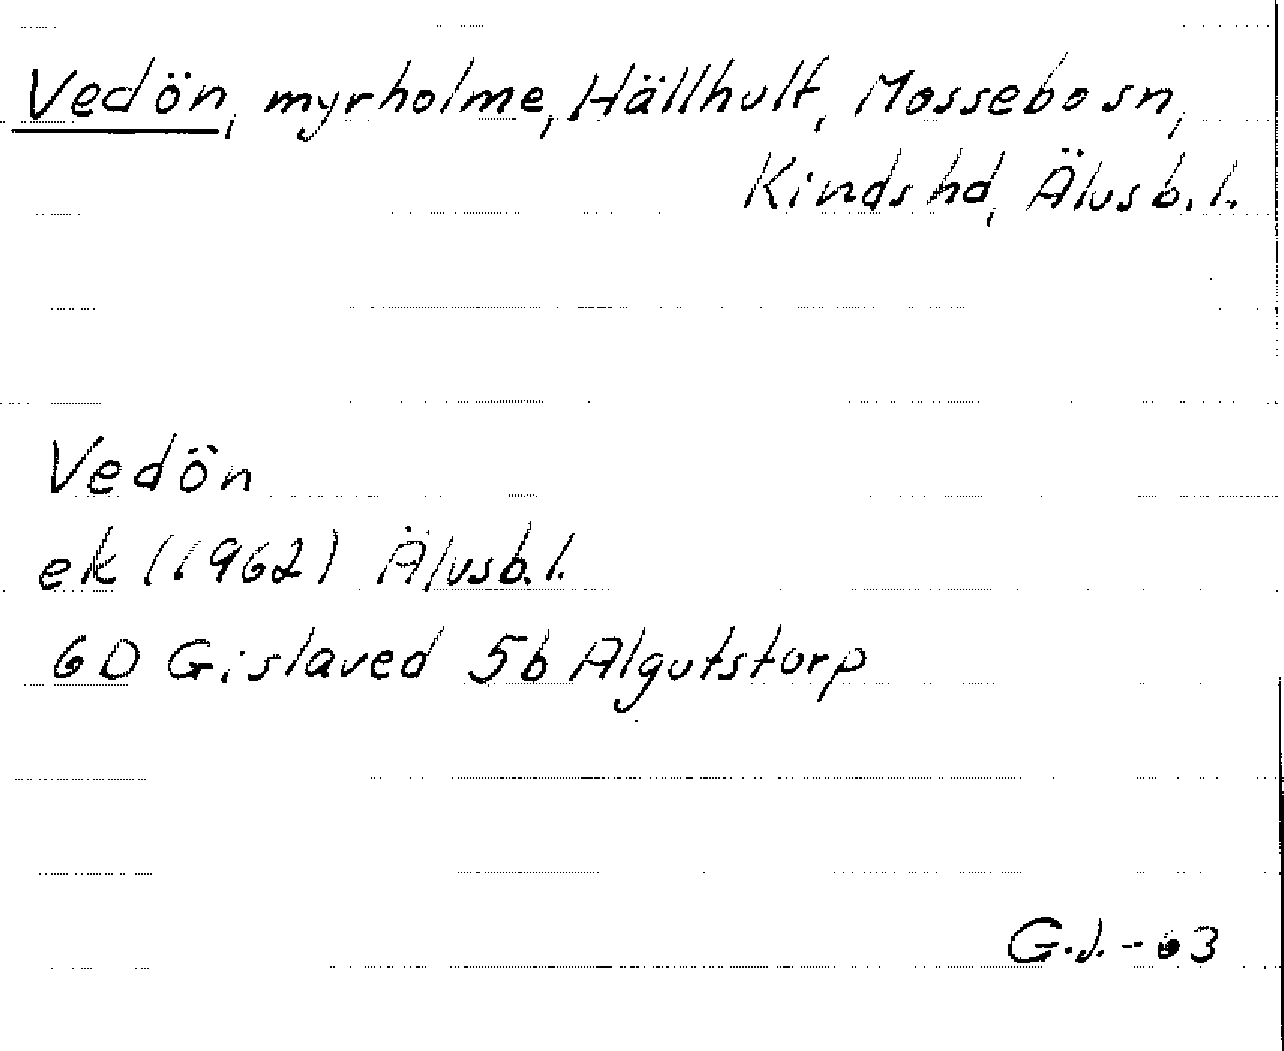 Vedön, myrholme, Hällhult, Mossebo sn,
Kinds hd, Älvsb. l.
Vedön
ek (1962) Älvsb. l.
6D Gislaved 5b Algutstorp
G.J. -63